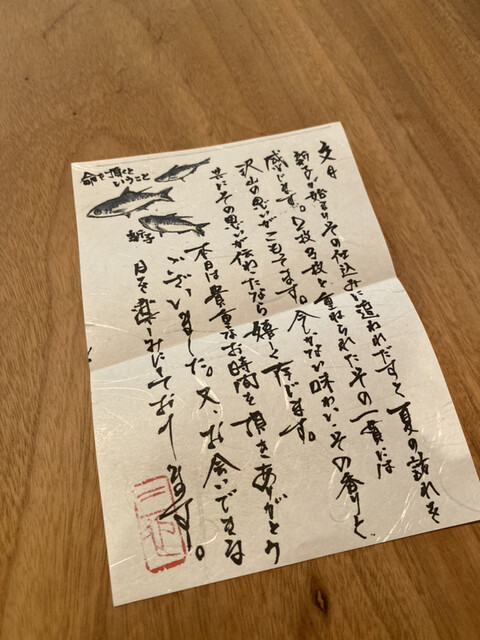 文月
新子が始まりその仕込みに追われだすと夏の訪れを
感じます。2枚3枚と重ねられたその一貫には
沢山の思いがこもてます。今しかない味わい、その香りと、
共にその思いが伝わたなら嬉しく存じます。
本日は貴重なお時間を頂きありがとう
ございました。又、お会いできる
日を楽しみにしております。
命を頂くと
いうこと
新子